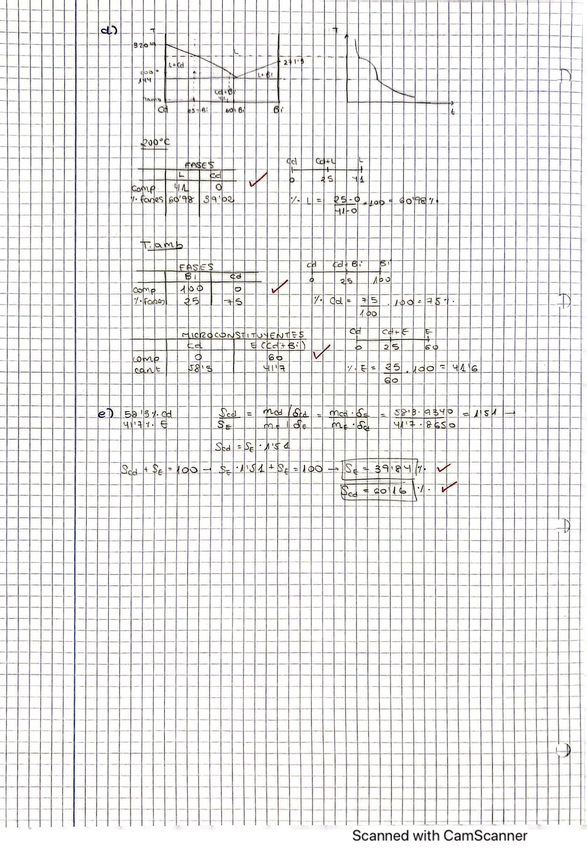 d)
T
T
320'9
L
L+Cd
271'3
200°
L+Bi
144
Cd+Bi
Tamb
Cd 25-Bi 60-Bi Bi
t
200°C
FASES
L Cd
comp 41 0
% fases 60'98 39'02
Cd Cd+L L
0 25 41
% L = 25-0 / 41-0 · 100 = 60'98%
T.amb
FASES
Bi Cd
comp 100 0
% fases 25 75
Cd Cd+Bi Bi
0 25 100
% Cd = 75 / 100 · 100 = 75%.
MICROCONSTITUYENTES
Cd E (Cd+Bi)
comp 0 60
cant 58'3 41'7
Cd Cd+E E
0 25 60
% E = 25 / 60 · 100 = 41'6
e) 58'3% Cd
41'7% E
Scd / SE = mcd / δcd / mE / δE = mcd · δE / mE · δcd = 58'3 · 9340 / 41'7 · 8650 = 1'51 →
Scd = SE · 1'51
Scd + SE = 100 → SE · 1'51 + SE = 100 → SE = 39'84 %
Scd = 60'16 %.
Scanned with CamScanner